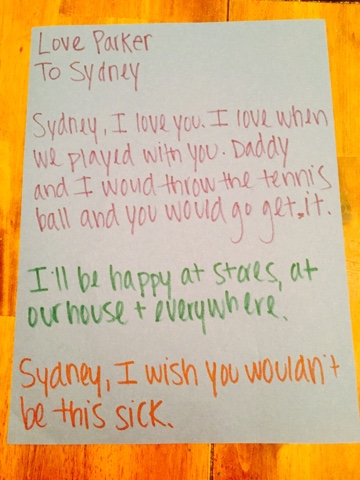 Love Parker
To Sydney
Sydney, I love you. I love when
we played with you. Daddy
and I woud throw the tennis
ball and you would go get it.
I'll be happy at stores, at
our house + everywhere.
Sydney, I wish you wouldn't
be this sick.